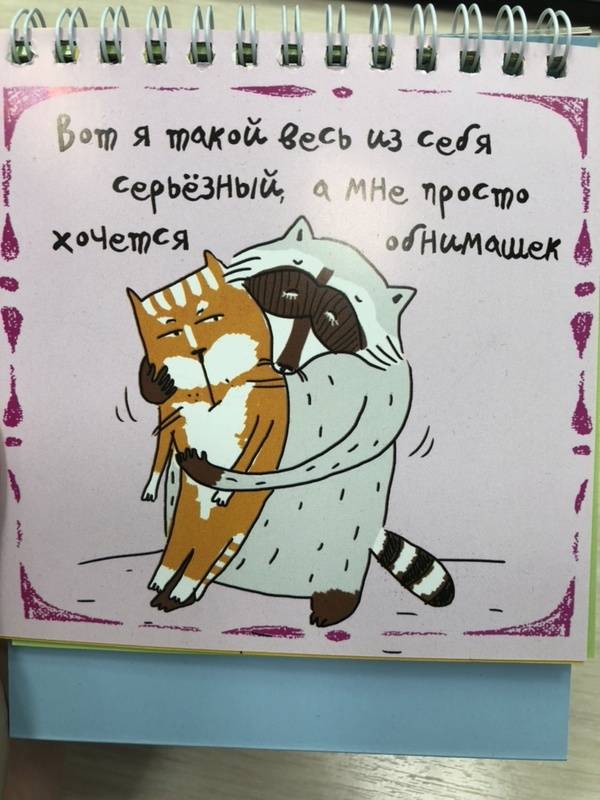 Вот я такой весь из себя
серьёзный, а мне просто
хочется обнимашек